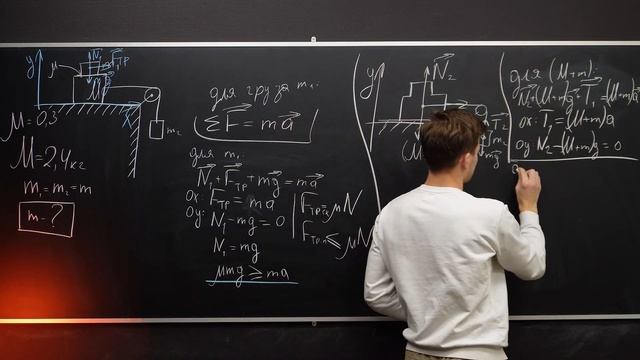 y
N₁
Fтр
μ
M
X
m₂
μ = 0,3
M = 2,4 кг
m₁ = m₂ = m
m - ?
для груза m₁:
ΣF = ma
для m₁:
N₁ + Fтр + mg = ma
Ox: Fтр = ma
Oy: N₁ - mg = 0
N₁ = mg
μmg ≥ ma
Fтр = μN
Fтр п ≤ μN
y
N₂
mg
для (M+m):
N₂ + (M+m)g + T₁ = (M+m)a
ox: T₁ = (M+m)a
oy: N₂ - (M+m)g = 0